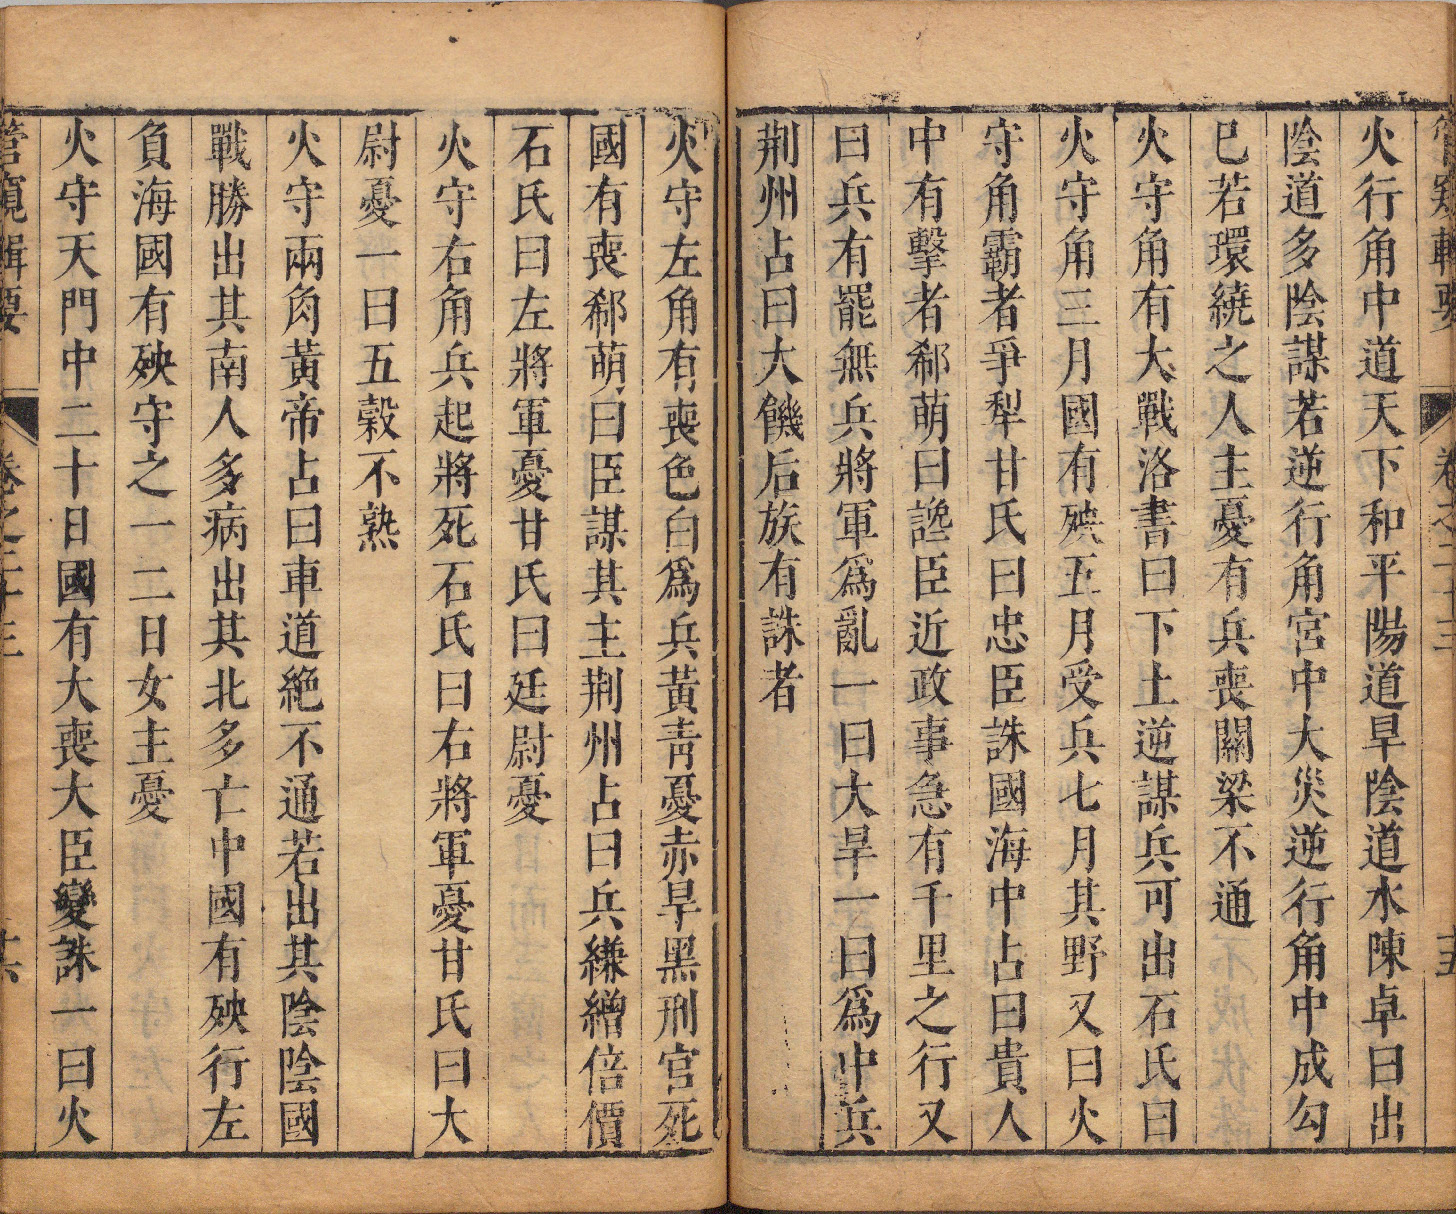 管窺輯要 卷之二十三 十五
火行角中道天下和平陽道旱陰道水陳卓曰出
陰道多陰謀若逆行角宮中大災逆行角中成勾
巳若環繞之人主憂有兵喪關梁不通
火守角有大戰洛書曰下土逆謀兵可出石氏曰
火守角三月國有殃五月受兵七月其野又曰火
守角霸者爭犁甘氏曰忠臣誅國海中占曰貴人
中有擊者郗萌曰讒臣近政事急有千里之行又
曰兵有罷無兵兵將軍為亂一曰大旱一曰為中兵
荆州占曰大饑后族有誅者
火守左角有喪色白為兵黃靑憂赤旱黑刑官死
國有喪郗萌曰臣謀其主荆州占曰兵縑繒倍價
石氏曰左將軍憂甘氏曰廷尉憂
火守右角兵起將死石氏曰右將軍憂甘氏曰大
尉憂一曰五穀不熟
火守兩角黃帝占曰車道絕不通若出其陰陰國
戰勝出其南人多病出其北多亡中國有殃行左
負海國有殃守之一二日女主憂
火守天門中二十日國有大喪大臣變誅一曰火
管窺輯要 卷之二十三 十六